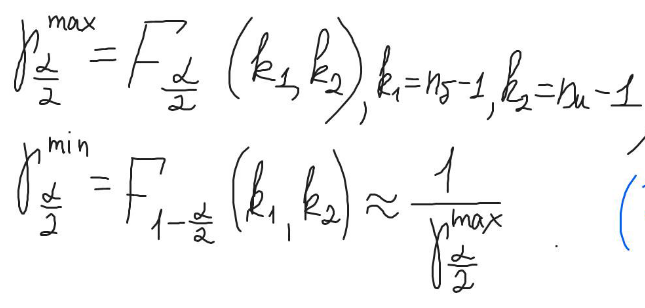 γ_{α/2}^{max} = F_{α/2} (k₁, k₂), k₁ = n_б − 1, k₂ = n_м − 1,
γ_{α/2}^{min} = F_{1−α/2} (k₁, k₂) ≈ 1/γ_{α/2}^{max}